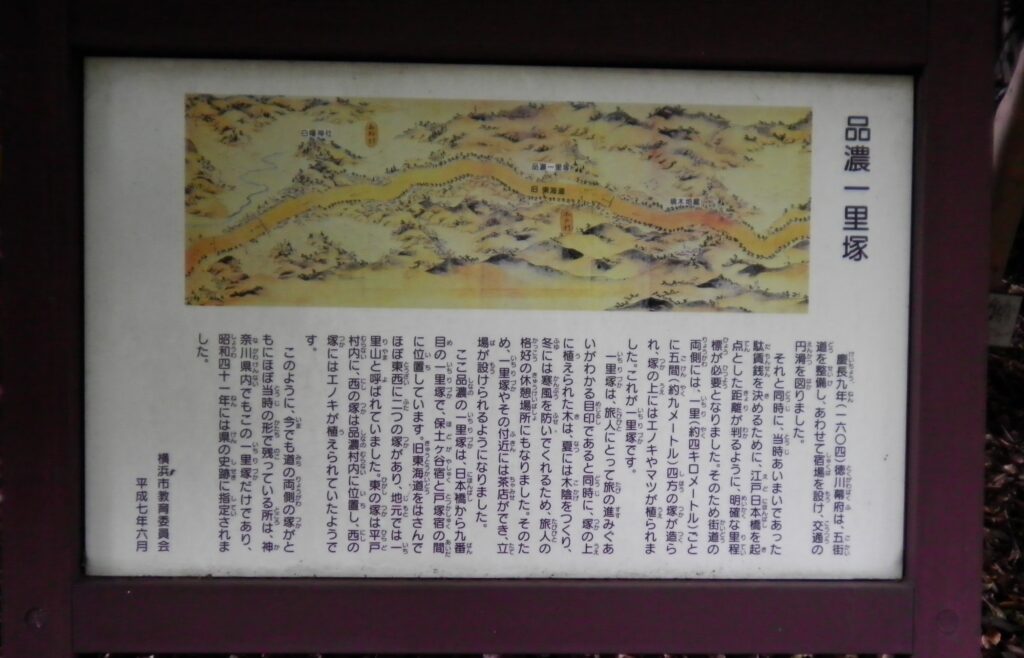 品濃一里塚
白幡神社
品濃一里塚
旧東海道
　慶長九年（一六〇四）徳川幕府は、五街
道を整備し、あわせて宿場を設け、交通の
円滑を図りました。
　それと同時に、当時あいまいであった
駄賃銭を決めるために、江戸日本橋を起
点とした距離が判るように、明確な里程
標が必要となりました。そのため街道の
両側には、一里（約四キロメートル）ごと
に五間（約九メートル）四方の塚が造ら
れ、塚の上にはエノキやマツが植られま
した。これが一里塚です。
　一里塚は、旅人にとって旅の進みぐあ
いがわかる目印であると同時に、塚の上
に植えられた木は、夏には木陰をつくり、
冬には寒風を防いでくれるため、旅人の
格好の休憩場所にもなりました。そのた
め、一里塚やその付近には茶店ができ、立
場が設けられるようになりました。
　ここ品濃の一里塚は、日本橋から九番
目の一里塚で、保土ヶ谷宿と戸塚宿の間
に位置しています。旧東海道をはさんで
ほぼ東西に二つの塚があり、地元では一
里山と呼ばれていました。東の塚は平戸
村内に、西の塚は品濃村内に位置し、西の
塚にはエノキが植えられていたようで
す。
　このように、今でも道の両側の塚がと
もにほぼ当時の形で残っている所は、神
奈川県内でもこの一里塚だけであり、
昭和四十一年には県の史跡に指定されま
した。
横浜市教育委員会
平成七年六月